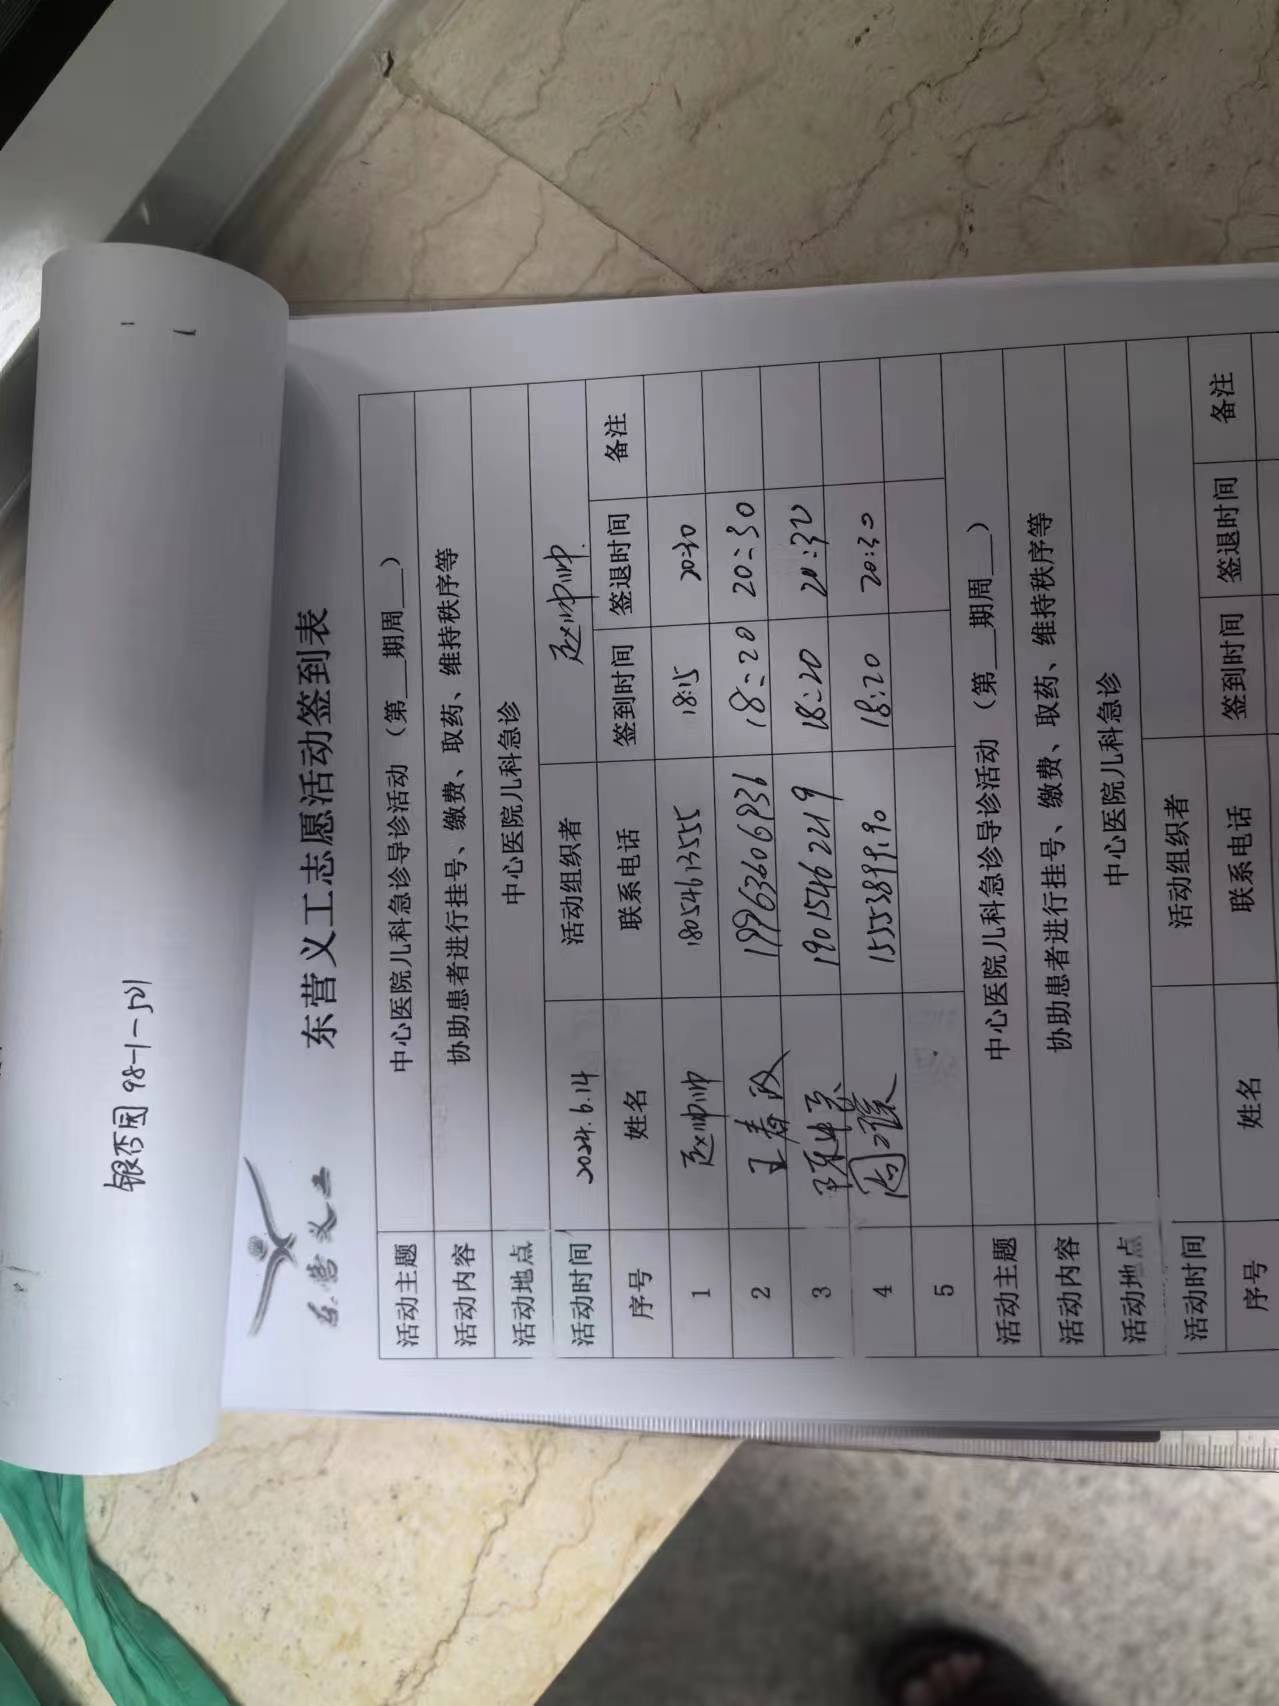 银杏园98-1-501
东营义工
东营义工志愿活动签到表
活动主题 中心医院儿科急诊导诊活动 （第__期周__）
活动内容 协助患者进行挂号、缴费、取药、维持秩序等
活动地点 中心医院儿科急诊
活动时间 2024.6.14 活动组织者 赵帅帅
序号 姓名 联系电话 签到时间 签退时间 备注
1 赵帅帅 18054613555 18:15 20:30
2 王春政 18:20 20:30
3 19015462219 18:20 20:30
4 18:20 20:30
5
活动主题 中心医院儿科急诊导诊活动 （第__期周__）
活动内容 协助患者进行挂号、缴费、取药、维持秩序等
活动地点 中心医院儿科急诊
活动时间 活动组织者
序号 姓名 联系电话 签到时间 签退时间 备注